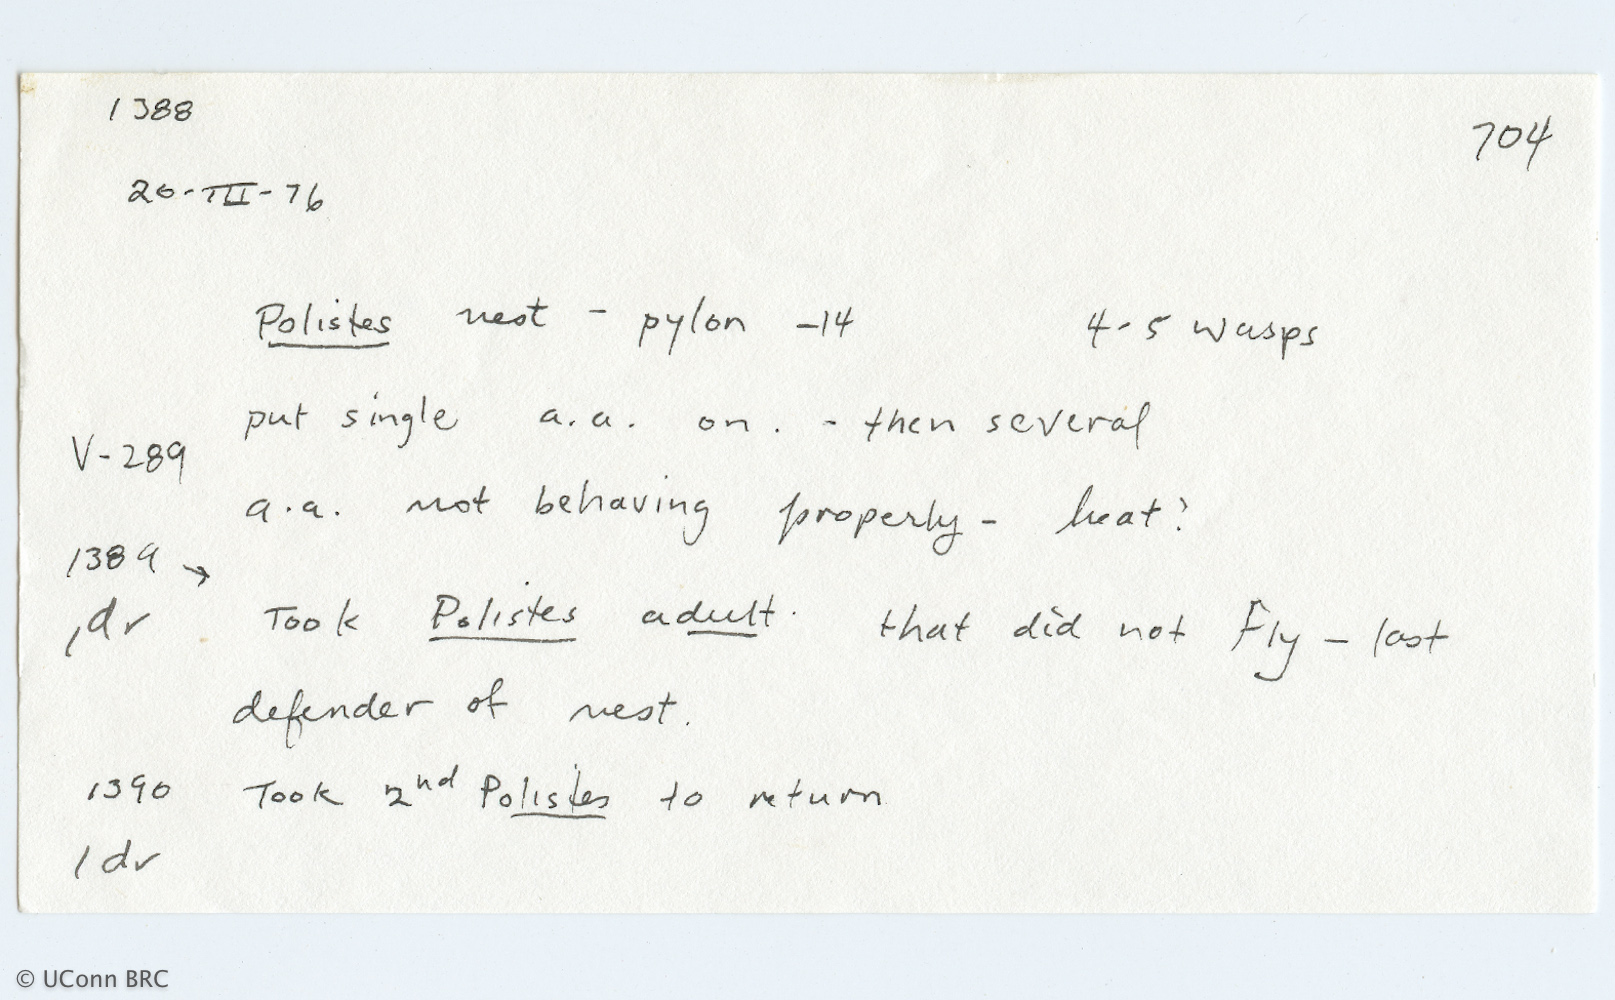 1388
704
20-III-76
Polistes nest - pylon -14 4-5 wasps
put single a.a. on. - then several
V-289
a.a. not behaving properly - heat?
1389 →
1dr Took Polistes adult. that did not Fly - last
defender of nest.
1390 Took 2nd Polistes to return
1dr
© UConn BRC